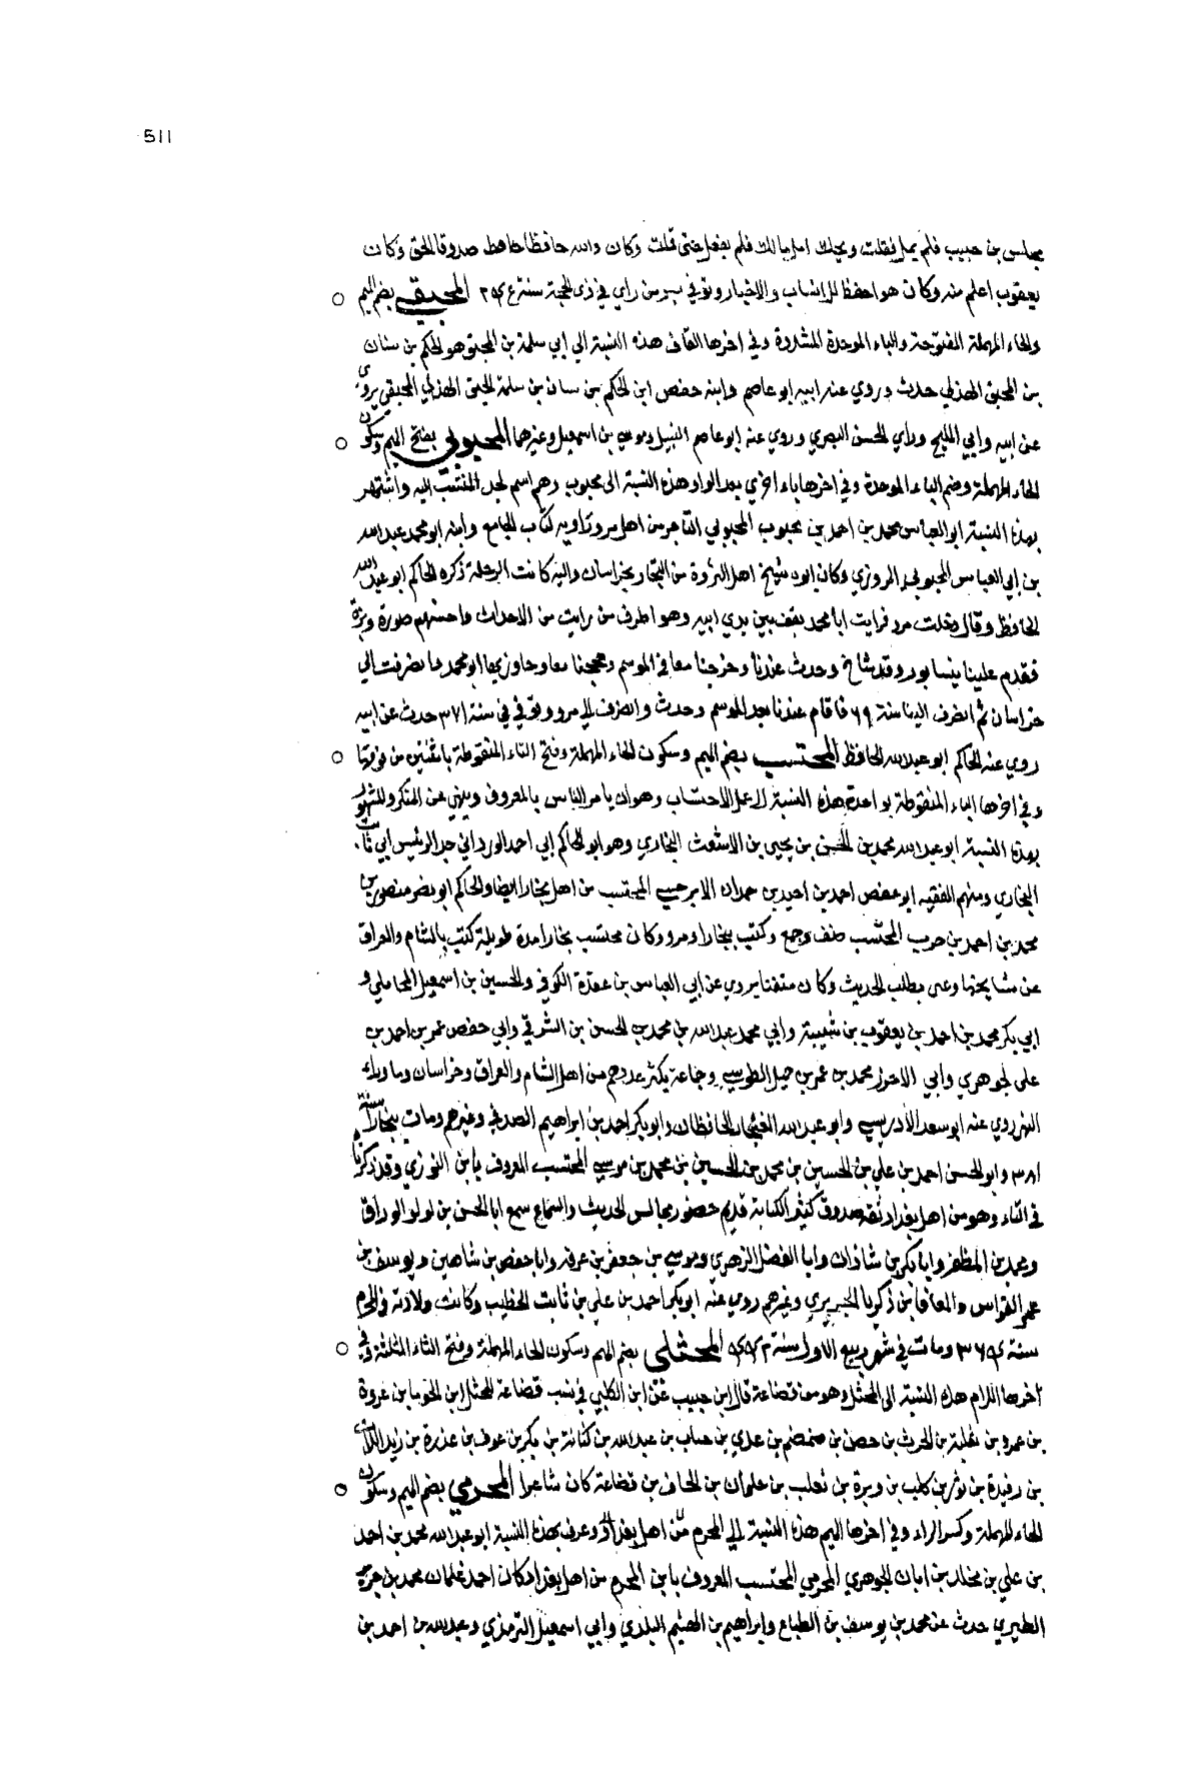 511
مجلس بن حبيب فلم يمل فقلت ويحك امل مالك فلم يفعل حتى قلت وكان والله حافظا حافظ صدوقا الحق وكان
يعقوب اعلم منه وكان هو احفظ للانساب والاخبار وتوفي بسر من راي في ذى الحجة سنة المحبقي بضم الميم
والحاء المهملة المفتوحة والباء الموحدة المشددة وفي اخرها القاف هذه النسبة الي ابي سلمة بن المحبق هو الحكم بن سنان
بن المحبق الهذلي حدث وروي عنه ابيه ابو عاصم وابنه حفص ابن الحكم بن سنان بن سلمة المحبق الهذلي المحبقي يروي
عن ابيه وابي المليح وراي الحسن البصري وروي عنه ابو عاصم النبيل وموسى بن اسمعيل وغيرهما المحبوبي بفتح الميم وسكون
الحاء المهملة وضم الباء الموحدة وفي اخرها باء اخري بعد الواو هذه النسبة الى محبوب وهو اسم لجد المنتسب اليه واشتهر
بهذه النسبة ابو العباس محمد بن احمد بن محبوب المحبوبي التاجر من اهل مرو راويه كتاب الجامع وابنه ابو محمد عبد الله
بن ابي العباس المحبوبي المروزي وكان ابوه شيخ اهل الثروة من التجار بخراسان واليه كانت الرحلة ذكره الحاكم ابو عبد الله
الحافظ وقال دخلت مرو فرايت ابا محمد يقف بين يدي ابيه وهو اطرف من رايت من الاحداث واحسنهم صورة وبزة
فقدم علينا نيسابور وقد شاخ وحدث عندنا وخرجنا معا في الموسم وحججنا معا وجاور بها ابو محمد وانصرفت الي
خراسان ثم انصرف الينا سنة ٦٩ فاقام عندنا بعد الموسم وحدث وانصرف الي مرو وتوفي في سنة ٣٧١ حدث عن ابيه
روي عنه الحاكم ابو عبد الله الحافظ المحتسب بضم الميم وسكون الحاء المهملة وفتح التاء المنقوطة باثنتين من فوقها
وفي اخرها الباء المنقوطة بواحدة هذه النسبة الى عمل الاحتساب وهو ان يامر الناس بالمعروف وينهي عن المنكر والمشهور
بهذه النسبة ابو عبد الله محمد بن الحسن بن يحيى بن الاشعث البخاري وهو ابو الحاكم ابي احمد الورداني جد الرئيس ابي ثابت
البخاري ومنهم الفقيه ابو حفص احمد بن احيد بن حمدان المحتسب من اهل بخارا ايضا والحاكم ابو نصر منصور بن
محمد بن احمد بن حرب المحتسب صنف وجمع وكتب ببخارا ومرو وكان محتسب بخارا مدة طويلة كتب بالشام والعراق
عن مشايخها وعنى بطلب الحديث وكان متقنا يروي عن ابي العباس بن عقدة الكوفي والحسين بن اسمعيل المحاملي و
ابي بكر محمد بن احمد بن يعقوب بن شيبة وابي محمد عبد الله بن محمد بن الحسن بن الشرقي وابي حفص عمر بن احمد بن
على الجوهري وابي الاحرز محمد بن عمر بن جميل الطوسي وجماعة يكثر عددهم من اهل الشام والعراق وخراسان وما وراء
النهر روي عنه ابو سعد الأدريسي وابو عبد الله الغنجار الحافظان وابو بكر احمد بن ابراهيم الصدفي وغيرهم ومات ببخارا سنة
٣٨١ وابو الحسن احمد بن علي بن الحسين بن محمد بن الحسين بن محمد بن موسى المحتسب المعروف بابن التوزي وقد ذكرناه
في التاء وهو من اهل بغداد ثقة صدوق كثير الكتابة قديم حضور مجالس الحديث والسماع سمع ابا الحسن بن لولو الوراق
ومحمد بن المظفر وابا بكر بن شاذان وابا الفضل الزهري وموسي بن جعفر بن عرفه وابا حفص بن شاهين ويوسف بن
عمر القواس والمعافا بن زكريا الجريري وغيرهم روي عنه ابو بكر احمد بن علي بن ثابت الخطيب وكانت ولادته في المحرم
سنة ومات في شهر ربيع الاول سنة المحثلي بضم الميم وسكون الحاء المهملة وفتح الثاء المثلثة وفي
اخرها اللام هذه النسبة الى المحثل وهو من قضاعة قال ابن حبيب عن ابن الكلبي في نسب قضاعة المحثل ابن الحوبا بن عروة
بن عمرو بن ثعلبة بن الحرث بن حصن بن ضمضم بن عدي بن جناب بن عبد الله بن كنانة بن بكر بن عوف بن عذرة بن زيد اللات
بن رفيدة بن ثور بن كلب بن وبرة بن تغلب بن حلوان بن الحاف بن قضاعة كان شاعرا المحرمي بضم الميم وسكون
الحاء المهملة وكسر الراء وفي اخرها الميم هذه النسبة الي المحرم من اهل بغداد وعرف بهذه النسبة ابو عبد الله محمد بن احمد
بن علي بن مخلد بن ابان الجوهري المحرمي المحتسب المعروف بابن المحرم من اهل بغداد كان احد غلمان محمد بن جرير
الطبري حدث عن محمد بن يوسف بن الطباع وابراهيم بن الهيثم البلدي وابي اسمعيل الترمذي وعبد الله بن احمد بن